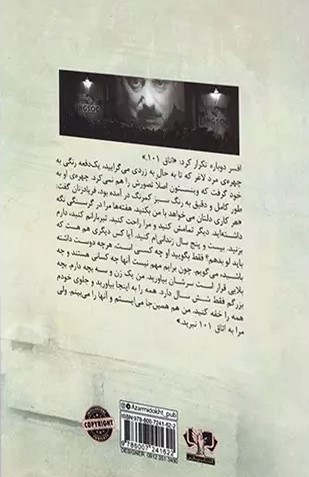 INGSOC
INGSOC
افسر دوباره تکرار کرد: «اتاق ۱۰۱.»
چهره‌ی مرد لاغر که تا به حال به زردی می‌گرایید، یک‌دفعه رنگی به
خود گرفت که وینستون اصلا تصورش را هم نمی‌کرد. چهره‌ی او به
طور کامل و دقیق به رنگ سبز کمرنگ در آمده بود، فریادزنان گفت:
«هر کاری دلتان می‌خواهد با من بکنید. هفته‌ها مرا در گرسنگی نگه
داشته‌اید. دیگر تمامش کنید و مرا راحت کنید. تیربارانم کنید، دارم
بزنید. بیست و پنج سال زندانی‌ام کنید. آیا کس دیگری هم هست که
باید لو بدهم؟ فقط بگویید او چه کسی است. هرچه دوست داشته
باشید، می‌گویم. چون برایم مهم نیست آنها چه کسانی هستند و چه
بلایی قرار است سرشان بیاورید. من یک زن و سه بچه دارم. بچه
بزرگم فقط شش سال دارد. همه را به اینجا بیاورید و جلوی خودم
همه را خفه کنید. من هم همین‌جا می‌ایستم و آنها را می‌بینم. ولی
مرا به اتاق ۱۰۱ نبرید.»
@Azarmidokht_pub
ISBN 978-600-7241-62-2
9786007241622
DESIGNER 0912 351 3400
COPYRIGHT